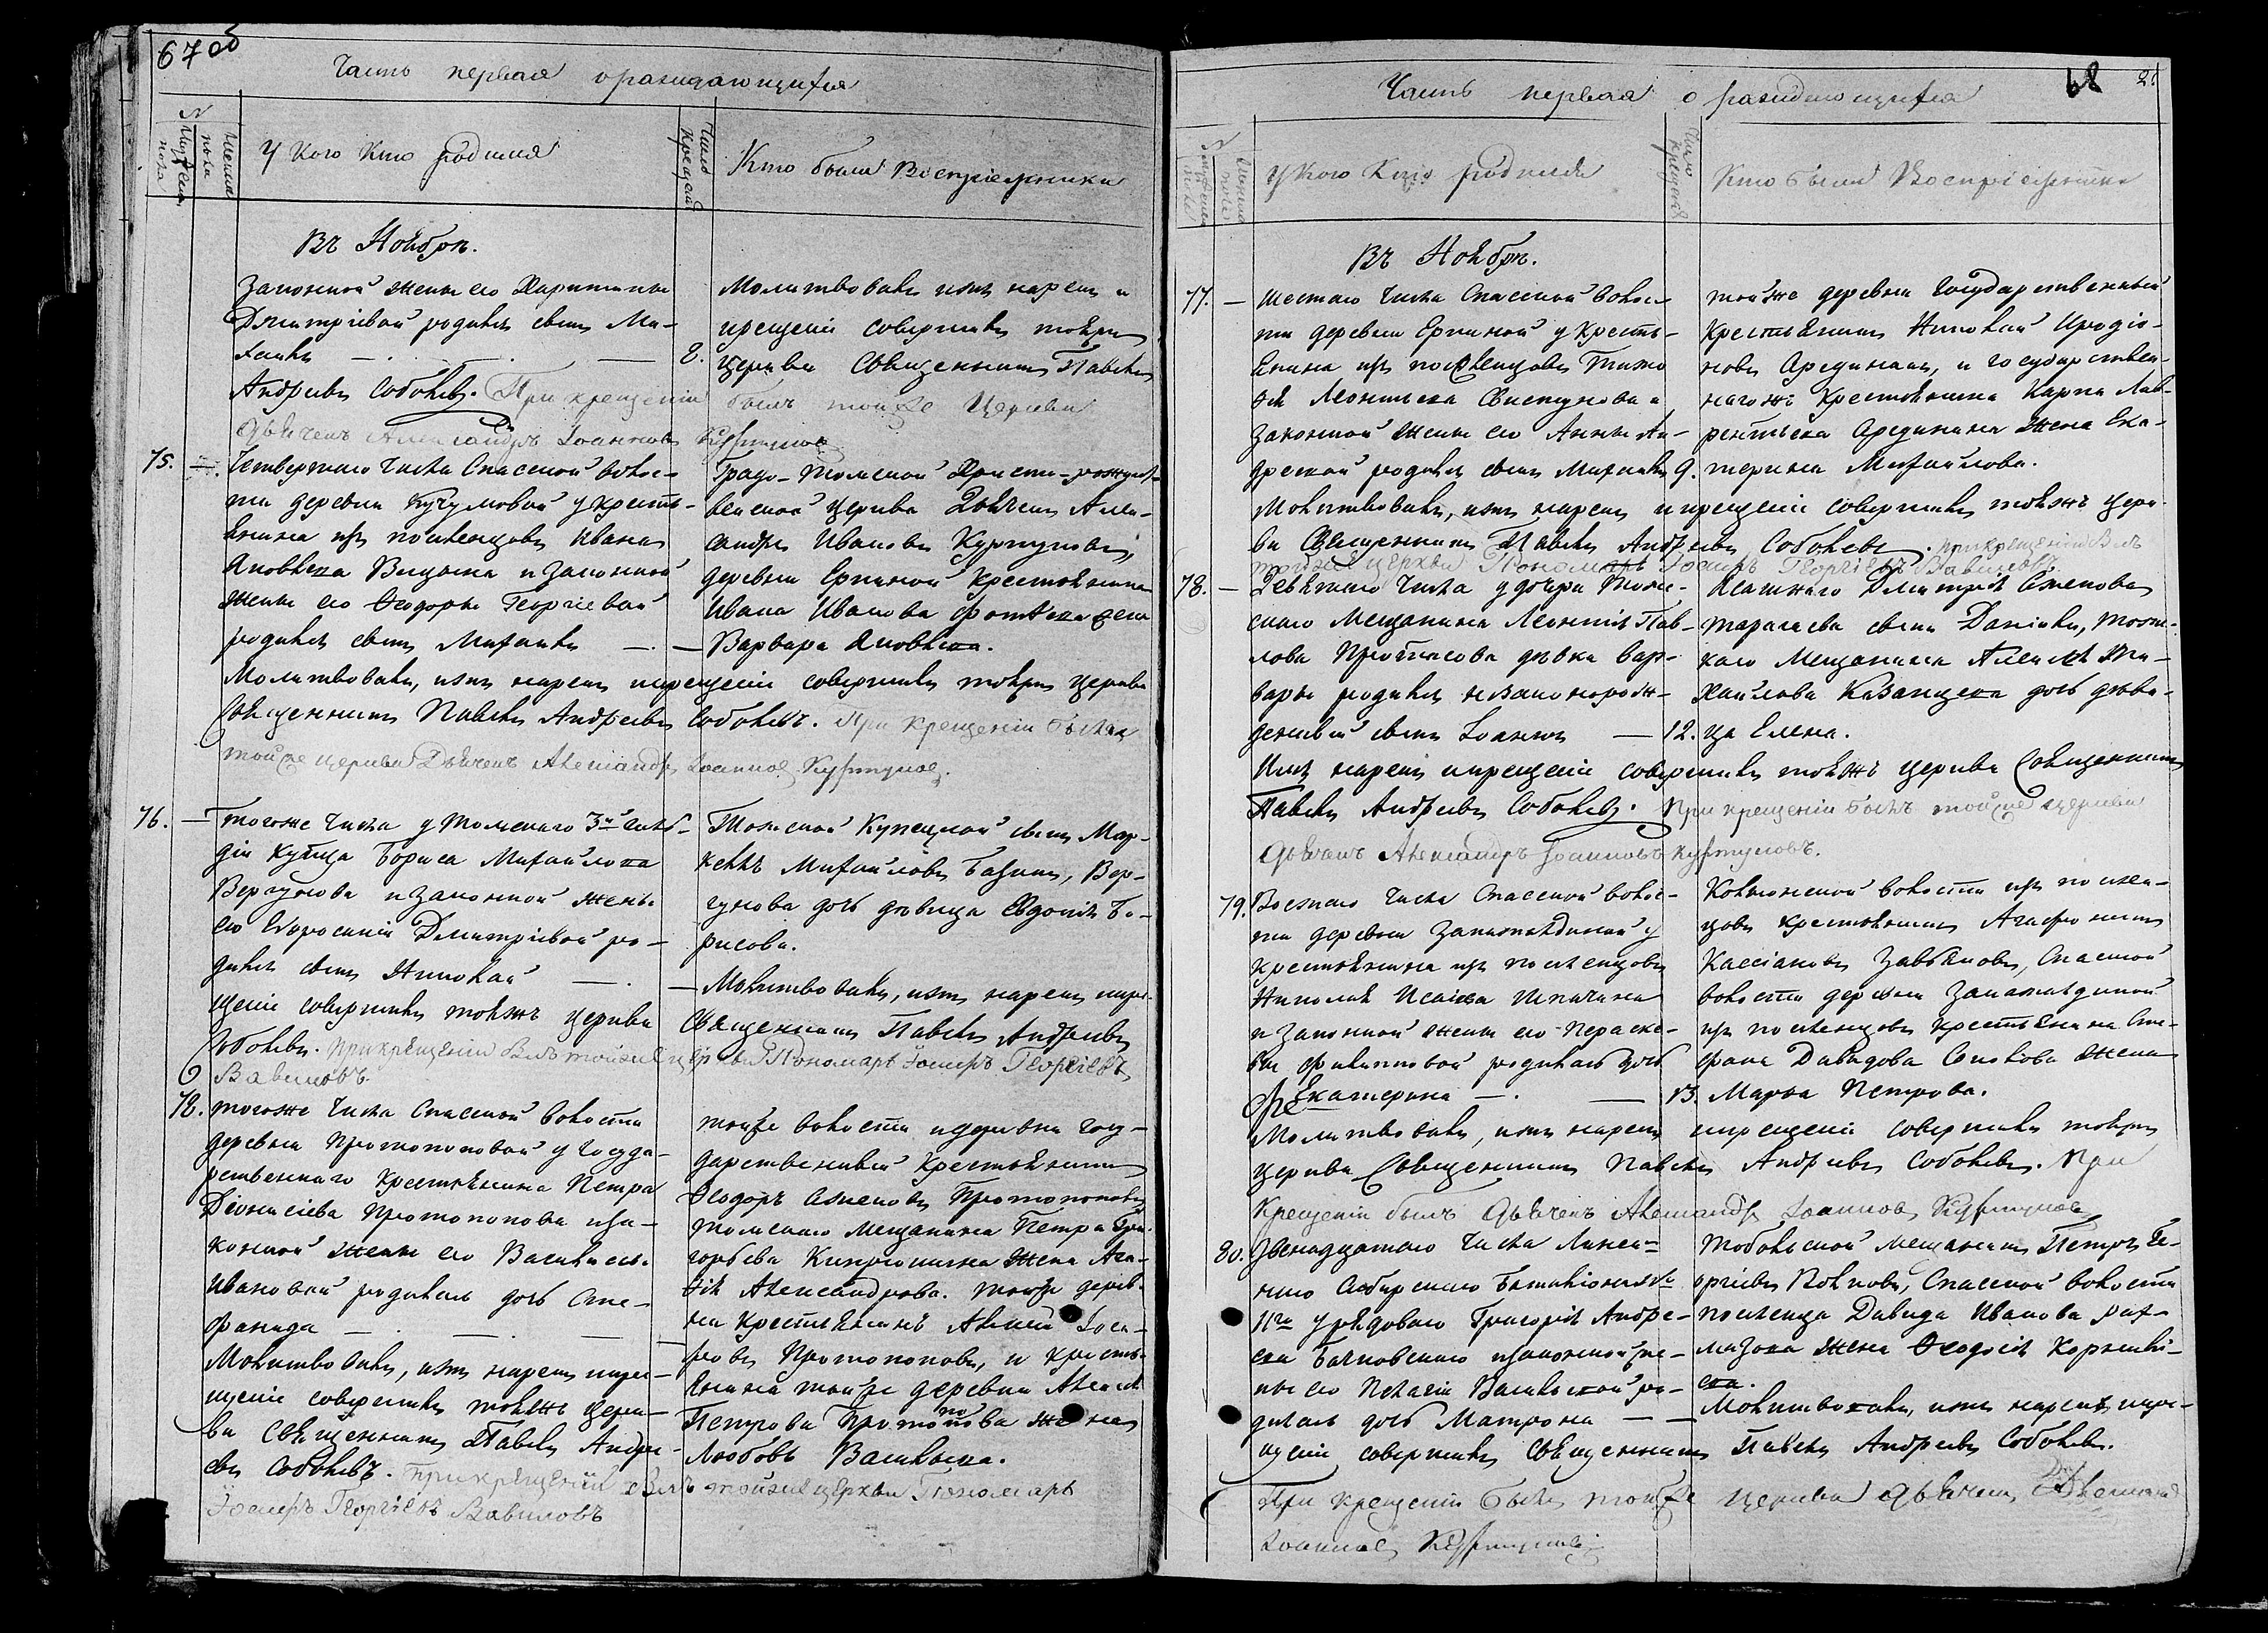 67 об
Часть первая о раждающихся
№
Мужеска пола
Женска пола
У Кого Кто родился
Число Крещенія
Кто были Воспріемники
Въ Ноябрѣ.
Законной жены его Харитины
Дмитріевой родился сынъ Ми-
хаилъ — . — 8.
Молитвовалъ имя нарекъ и
крещеніе совершилъ тояжъ
церкви Священникъ Павелъ
Андреевъ Соболевъ. При крещеніи былъ тойже Церкви
Дьячекъ Александръ Іоанновъ Куртуковъ
75. — Четвертаго числа Спасской волос-
ти деревни Кучумовой у кресть-
янина изъ поселенцовъ Ивана
Яковлева и законной
жены его Ѳеодоры Георгіевой
родился сынъ Михаилъ — . —
Градо-Томской Христо-рождест-
венской церкви Дьячекъ Алек-
сандръ Ивановъ Куртуковъ,
деревни Ерлиной Крестьянина
Ивана Иванова жена
Варвара Яковлева.
Молитвовалъ, имя нарекъ и крещеніе совершилъ тояжъ церкви
Священникъ Павелъ Андреевъ Соболевъ. При крещеніи былъ
тойже церкви Дьячекъ Александръ Іоанновъ Куртуковъ.
76. — Тогоже числа у Томскаго 3й гиль-
діи купца Бориса Михайлова
Вергунова и законной жены
его Евфросиніи Дмитріевой ро-
дился сынъ Николай — . —
Томской Купецкой сынъ Мар-
келъ Михайловъ Вер-
гунова дочь дѣвица Евдокія Бо-
рисова.
Молитвовалъ, имя нарекъ и кре-
щеніе совершилъ тояжъ церкви Священникъ Павелъ Андреевъ
Соболевъ. При крещеніи былъ тойже церкви Пономарь Іосифъ Георгіевъ
Вавиловъ.
72. Тогоже числа Спасской волости
деревни Протопоповой у Госуда-
рственнаго Крестьянина Петра
Діонисіева Протопопова и за-
конной жены его Василисы
Ивановой родилась дочь Сте-
фанида — . — . —
тойже волости и деревни Госу-
дарственный Крестьянинъ
Ѳеодоръ Семеновъ Протопоповъ
Томскаго Мещанина Петра Гри-
горьева жена Ага-
фія Александрова. Тойже дерев-
ни крестьянинъ Алексей Іоси-
фовъ Протопоповъ, и кресть-
янина тойже деревни Алексея
Петрова Протопопова жена
Любовь Васильева.
Молитвовалъ, имя нарекъ и кре-
щеніе совершилъ тояжъ церк-
ви Священникъ Павелъ Андре-
евъ Соболевъ. При крещеніи былъ тойже церкви Пономарь
Іосифъ Георгіевъ Вавиловъ
68
Часть первая о раждающихся
№
У Кого Кто родился
Число Крещенія
Кто были Воспріемники
Въ Ноябрѣ.
77. — Шестаго числа Спасской волос-
ти деревни Ерлиной у кресть-
янина изъ поселенцовъ Тимо
фея Леонтьева Свистунова и
законной жены его Анны Ан-
дреевой родился сынъ Михаилъ 9.
тойже деревни Государственный
Крестьянинъ Николай Иродіо-
новъ и государствен-
нагожъ Крестьянина Карпа Лав-
рентьева жена Ека-
терина Михайлова.
Молитвовалъ, имя нарекъ и крещеніе совершилъ тояжъ церк-
ви Священникъ Павелъ Андреевъ Соболевъ. При крещеніи былъ
тойже церкви Пономарь Іосифъ Георгіевъ Вавиловъ.
78. — Девятаго числа у дочери Томс-
скаго Мещанина Леонтія Пав-
лова Протасова дѣвки Вар-
вары родился незаконорож-
денный сынъ Іоаннъ — 12.
Дмитрія Семенова
сынъ Даніилъ, Томс-
каго Мещанина Алексея Ми-
хайлова Казанцева дочь дѣви-
ца Елена.
Имя нарекъ и крещеніе совершилъ тояжъ церкви Священникъ
Павелъ Андреевъ Соболевъ. При крещеніи былъ тойже церкви
Дьячекъ Александръ Іоанновъ Куртуковъ.
79. Восмаго числа Спасской волос-
ти деревни у
крестьянина изъ поселенцовъ
Николая Исаева
и законной жены его Параске-
вы Филипповой родилась дочь
Екатерина — . — 13.
волости изъ поселен-
цовъ крестьянинъ Агафонъ
Кассіановъ Завьяловъ, Спасской
волости деревни
изъ поселенцовъ крестьянина Сте-
фана Давыдова жена
Марѳа Петрова.
Молитвовалъ, имя нарекъ и крещеніе совершилъ тояжъ
церкви Священникъ Павелъ Андреевъ Соболевъ. При
Крещеніи былъ Дьячекъ Александръ Іоанновъ Куртуковъ
80. Двенадцатаго числа Линей-
наго Сибирскаго Баталіона №
11го у рядоваго Григорія Андре-
ева и законной же-
ны его Пелагіи Васильевой ро-
дилась дочь Матрона — —
Тобольской мещанинъ Петръ Ге-
оргіевъ Волковъ, Спасской волости
поселенца Давида Иванова
жена Ѳеодосія Корнилі-
ева.
Молитвовалъ, имя нарекъ и кре-
щеніе совершилъ Священникъ Павелъ Андреевъ Соболевъ.
При крещеніи былъ тойже Церкви Дьячекъ Александръ
Іоанновъ Куртуковъ